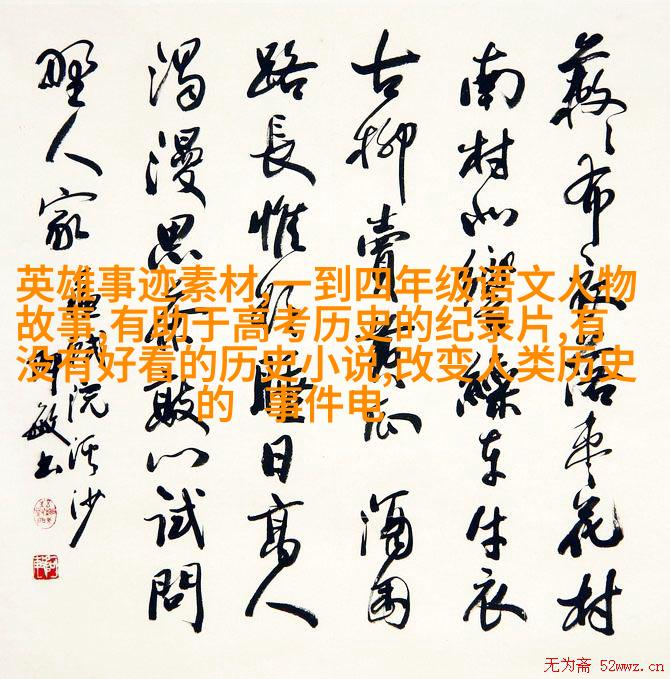 蔌〻衣巾落枣花村
南村北響繅车牛衣
古柳賣黄瓜 酒困
路長惟欲睡日高人
渴漫思茶敲门试問
野人家
浣溪沙
敏书
英雄事迹素材,一到四年级语文人物
故事,有助于高考历史的纪录片,有
没有好看的历史小说,改变人类历史
的 事件电
无为斋 52wwz.cn